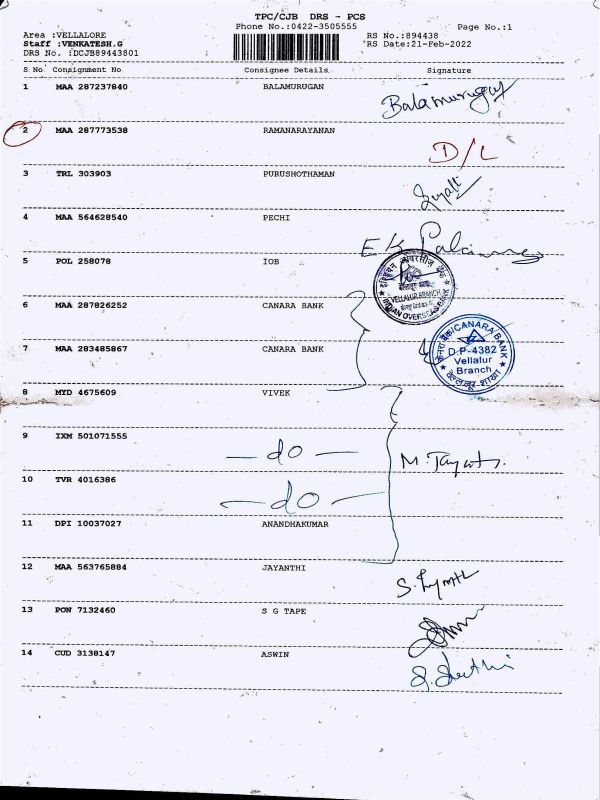 TPC/CJB DRS - PCS
Phone No.:0422-3505555
Page No.:1
Area :VELLALORE
RS No.:894438
Staff :VENKATESH.G
RS Date:21-Feb-2022
DRS No. :DCJB89443801
S. No Consignment No Consignee Details Signature
1 MAA 287237840 BALAMURUGAN Balamurugan
2 MAA 287773538 RAMANARAYANAN D/L
3 TRL 303903 PURUSHOTHAMAN
4 MAA 564628540 PECHI
5 POL 258078 IOB
VELLALUR BRANCH
INDIAN OVERSEAS BANK
6 MAA 287826252 CANARA BANK
CANARA BANK
7 MAA 283485867 CANARA BANK
D.P-4382
Vellalur
Branch
8 MYD 4675609 VIVEK
9 IXM 501071555 — do —
10 TVR 4016386 — do —
11 DPI 10037027 ANANDHAKUMAR
12 MAA 563765884 JAYANTHI
13 PON 7132460 S G TAPE
14 CUD 3138147 ASWIN